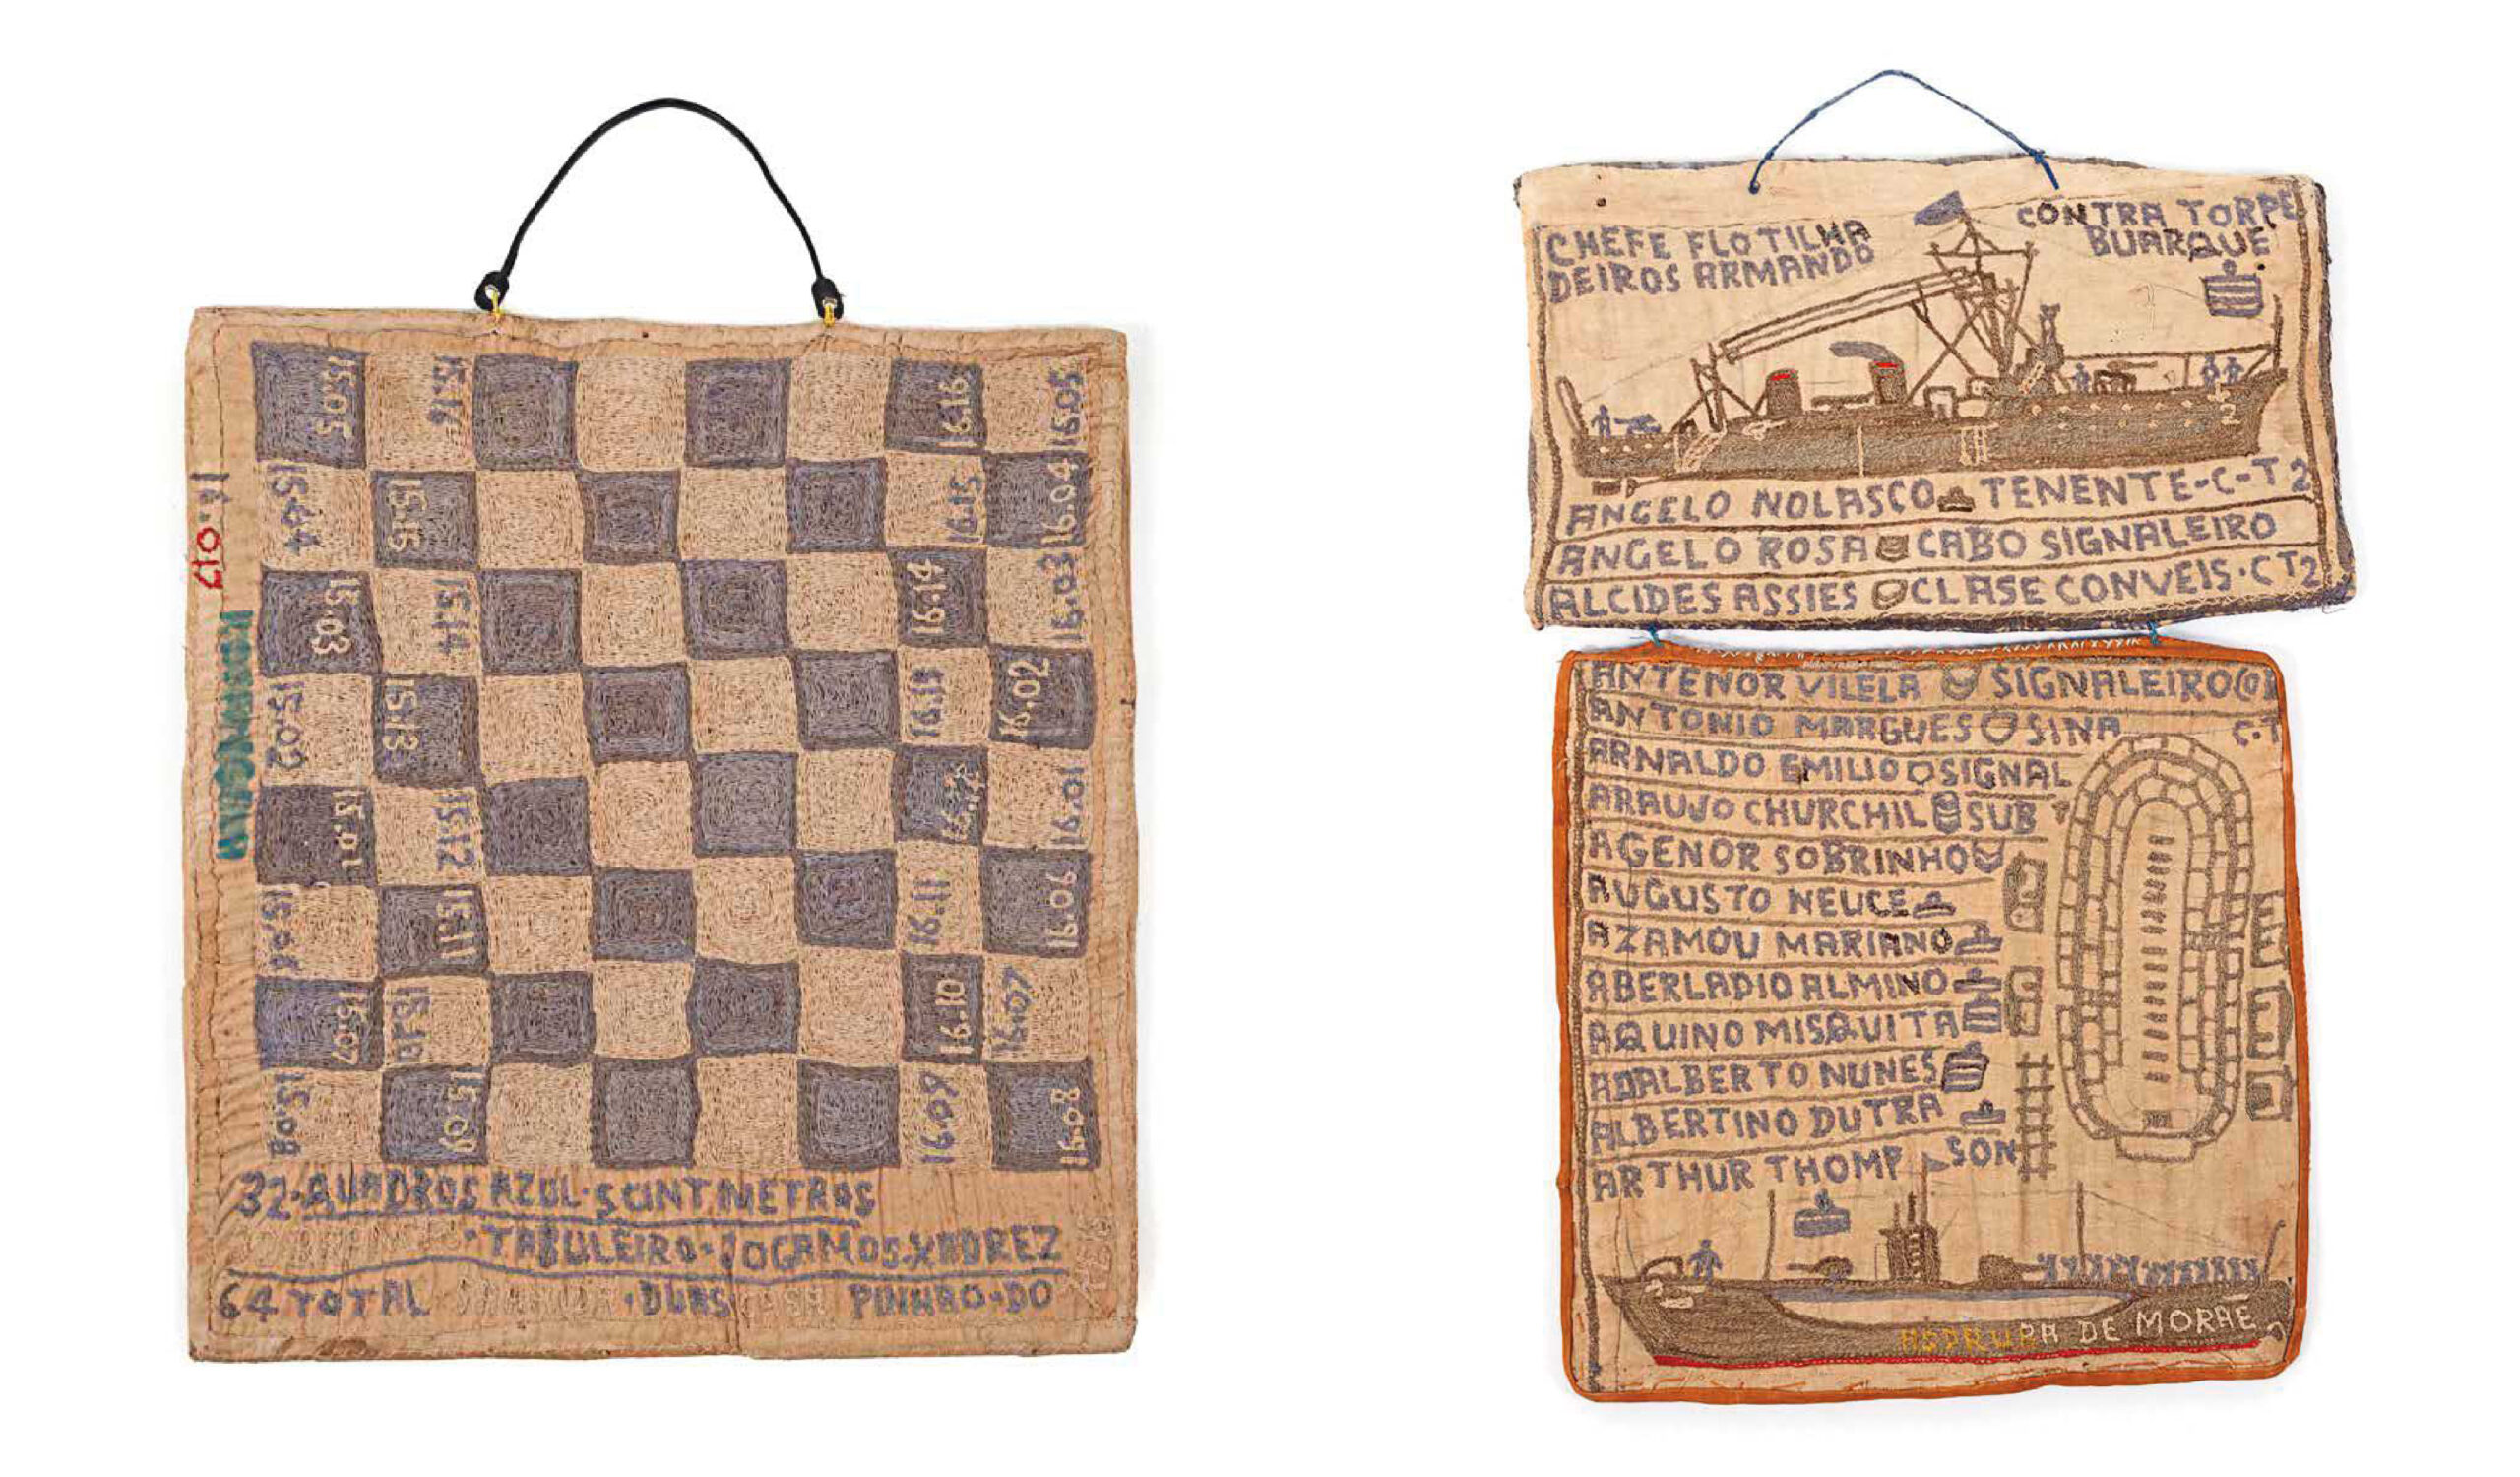 15.05
15.16
16.16
16.05
15.15
16.15
16.04
15.03
15.14
16.14
16.03
15.02
15.13
16.13
16.02
15.01
15.12
16.01
15.11
16.11
16.06
15.07
16.10
16.07
15.08
15.09
16.09
16.08
16.017
32-QUADROS AZUL
TABULEIRO-JOGAMOS XADREZ
64 TOTAL DUAS PINHAO-DO
CHEFE FLOTILHA CONTRA TORPE
DEIROS ARMANDO BUARQUE
2
ANGELO NOLASCO TENENTE-C-T 2
ANGELO ROSA CABO SIGNALEIRO
ALCIDES ASSIES CLASE CONVEIS·CT2
ANTENOR VILELA SIGNALEIRO
ANTONIO MARGUES SINA C·T
ARNALDO EMILIO SIGNAL
ARAUJO CHURCHIL SUB
AGENOR SOBRINHO
AUGUSTO NEUCE
AZAMOU MARIANO
ABERLADIO ALMINO
AQUINO MISQUITA
ADALBERTO NUNES
ALBERTINO DUTRA
ARTHUR THOMP SON
DE MORAE